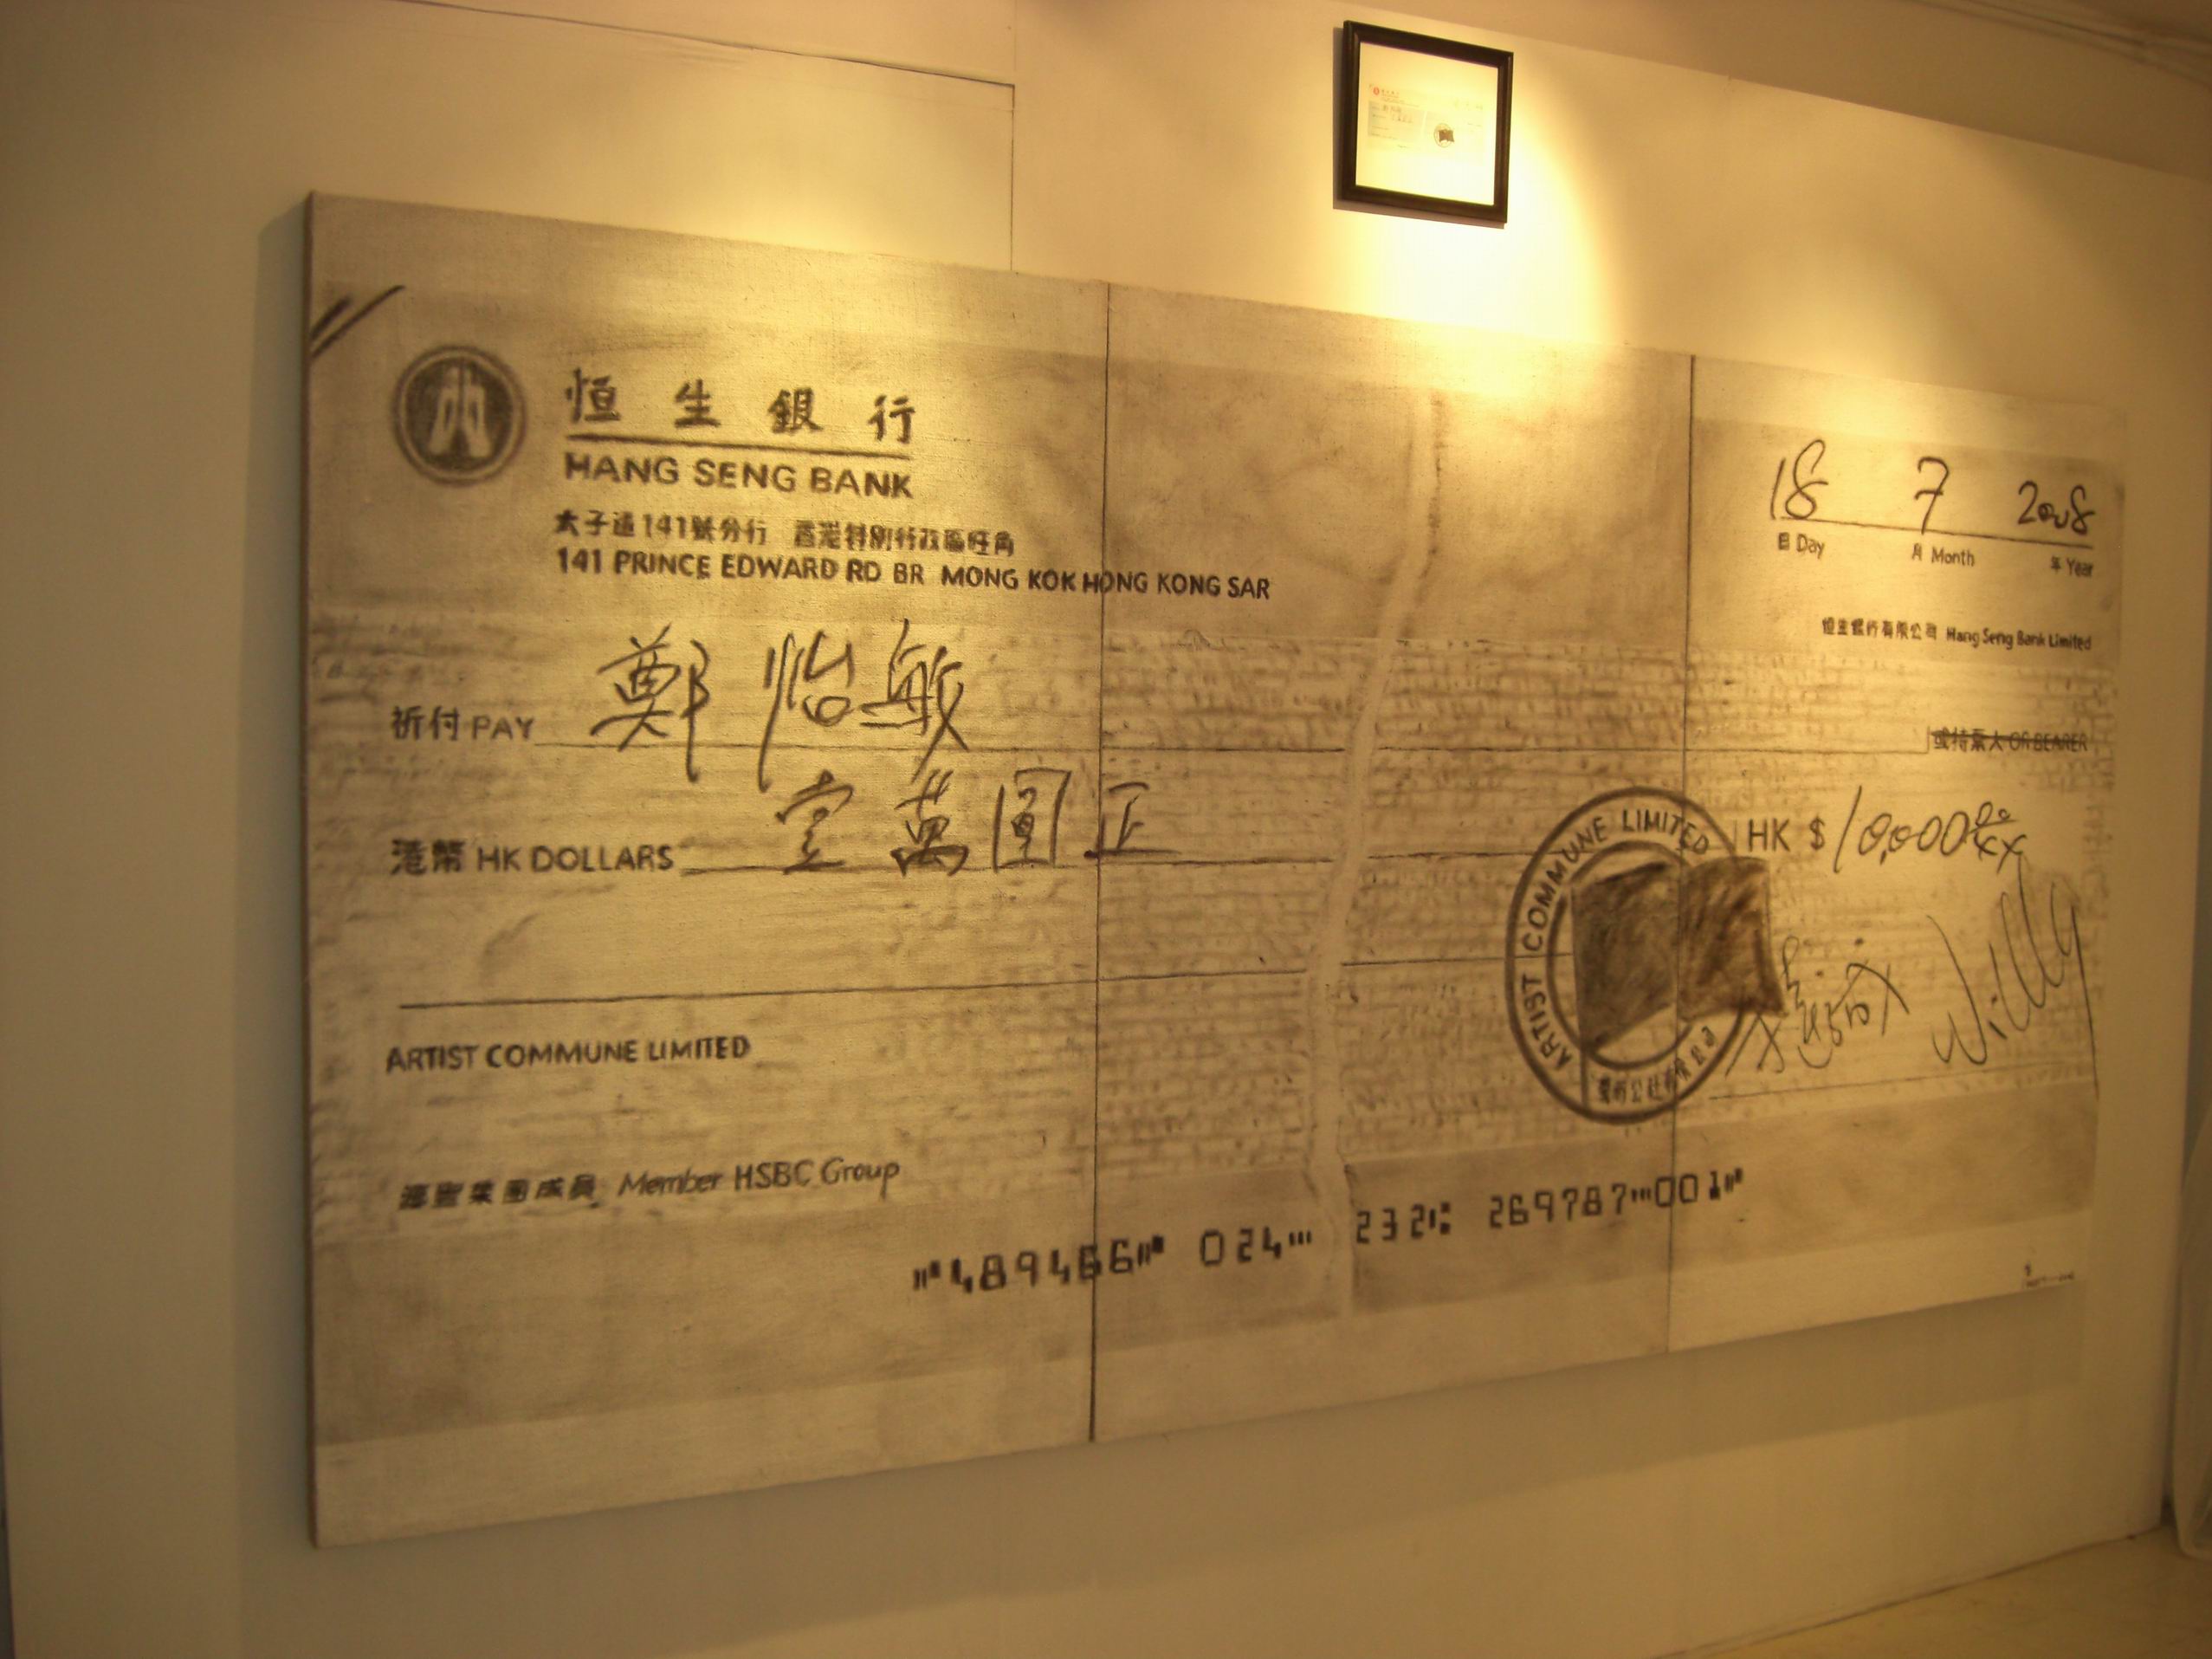 恒生銀行
HANG SENG BANK
太子道141號分行 香港特別行政區旺角
141 PRINCE EDWARD RD BR MONG KOK HONG KONG SAR
18 7 2008
日 Day 月 Month 年 Year
恒生銀行有限公司 Hang Seng Bank Limited
祈付 PAY 鄭怡敏
或持票人 OR BEARER
港幣 HK DOLLARS 壹萬圓正
HK $ 10,000
ARTIST COMMUNE LIMITED
藝術公社有限公司
Willy
ARTIST COMMUNE LIMITED
滙豐集團成員 Member HSBC Group
⑈489466⑈ 024⑉ 232⑆ 269787⑉001⑈